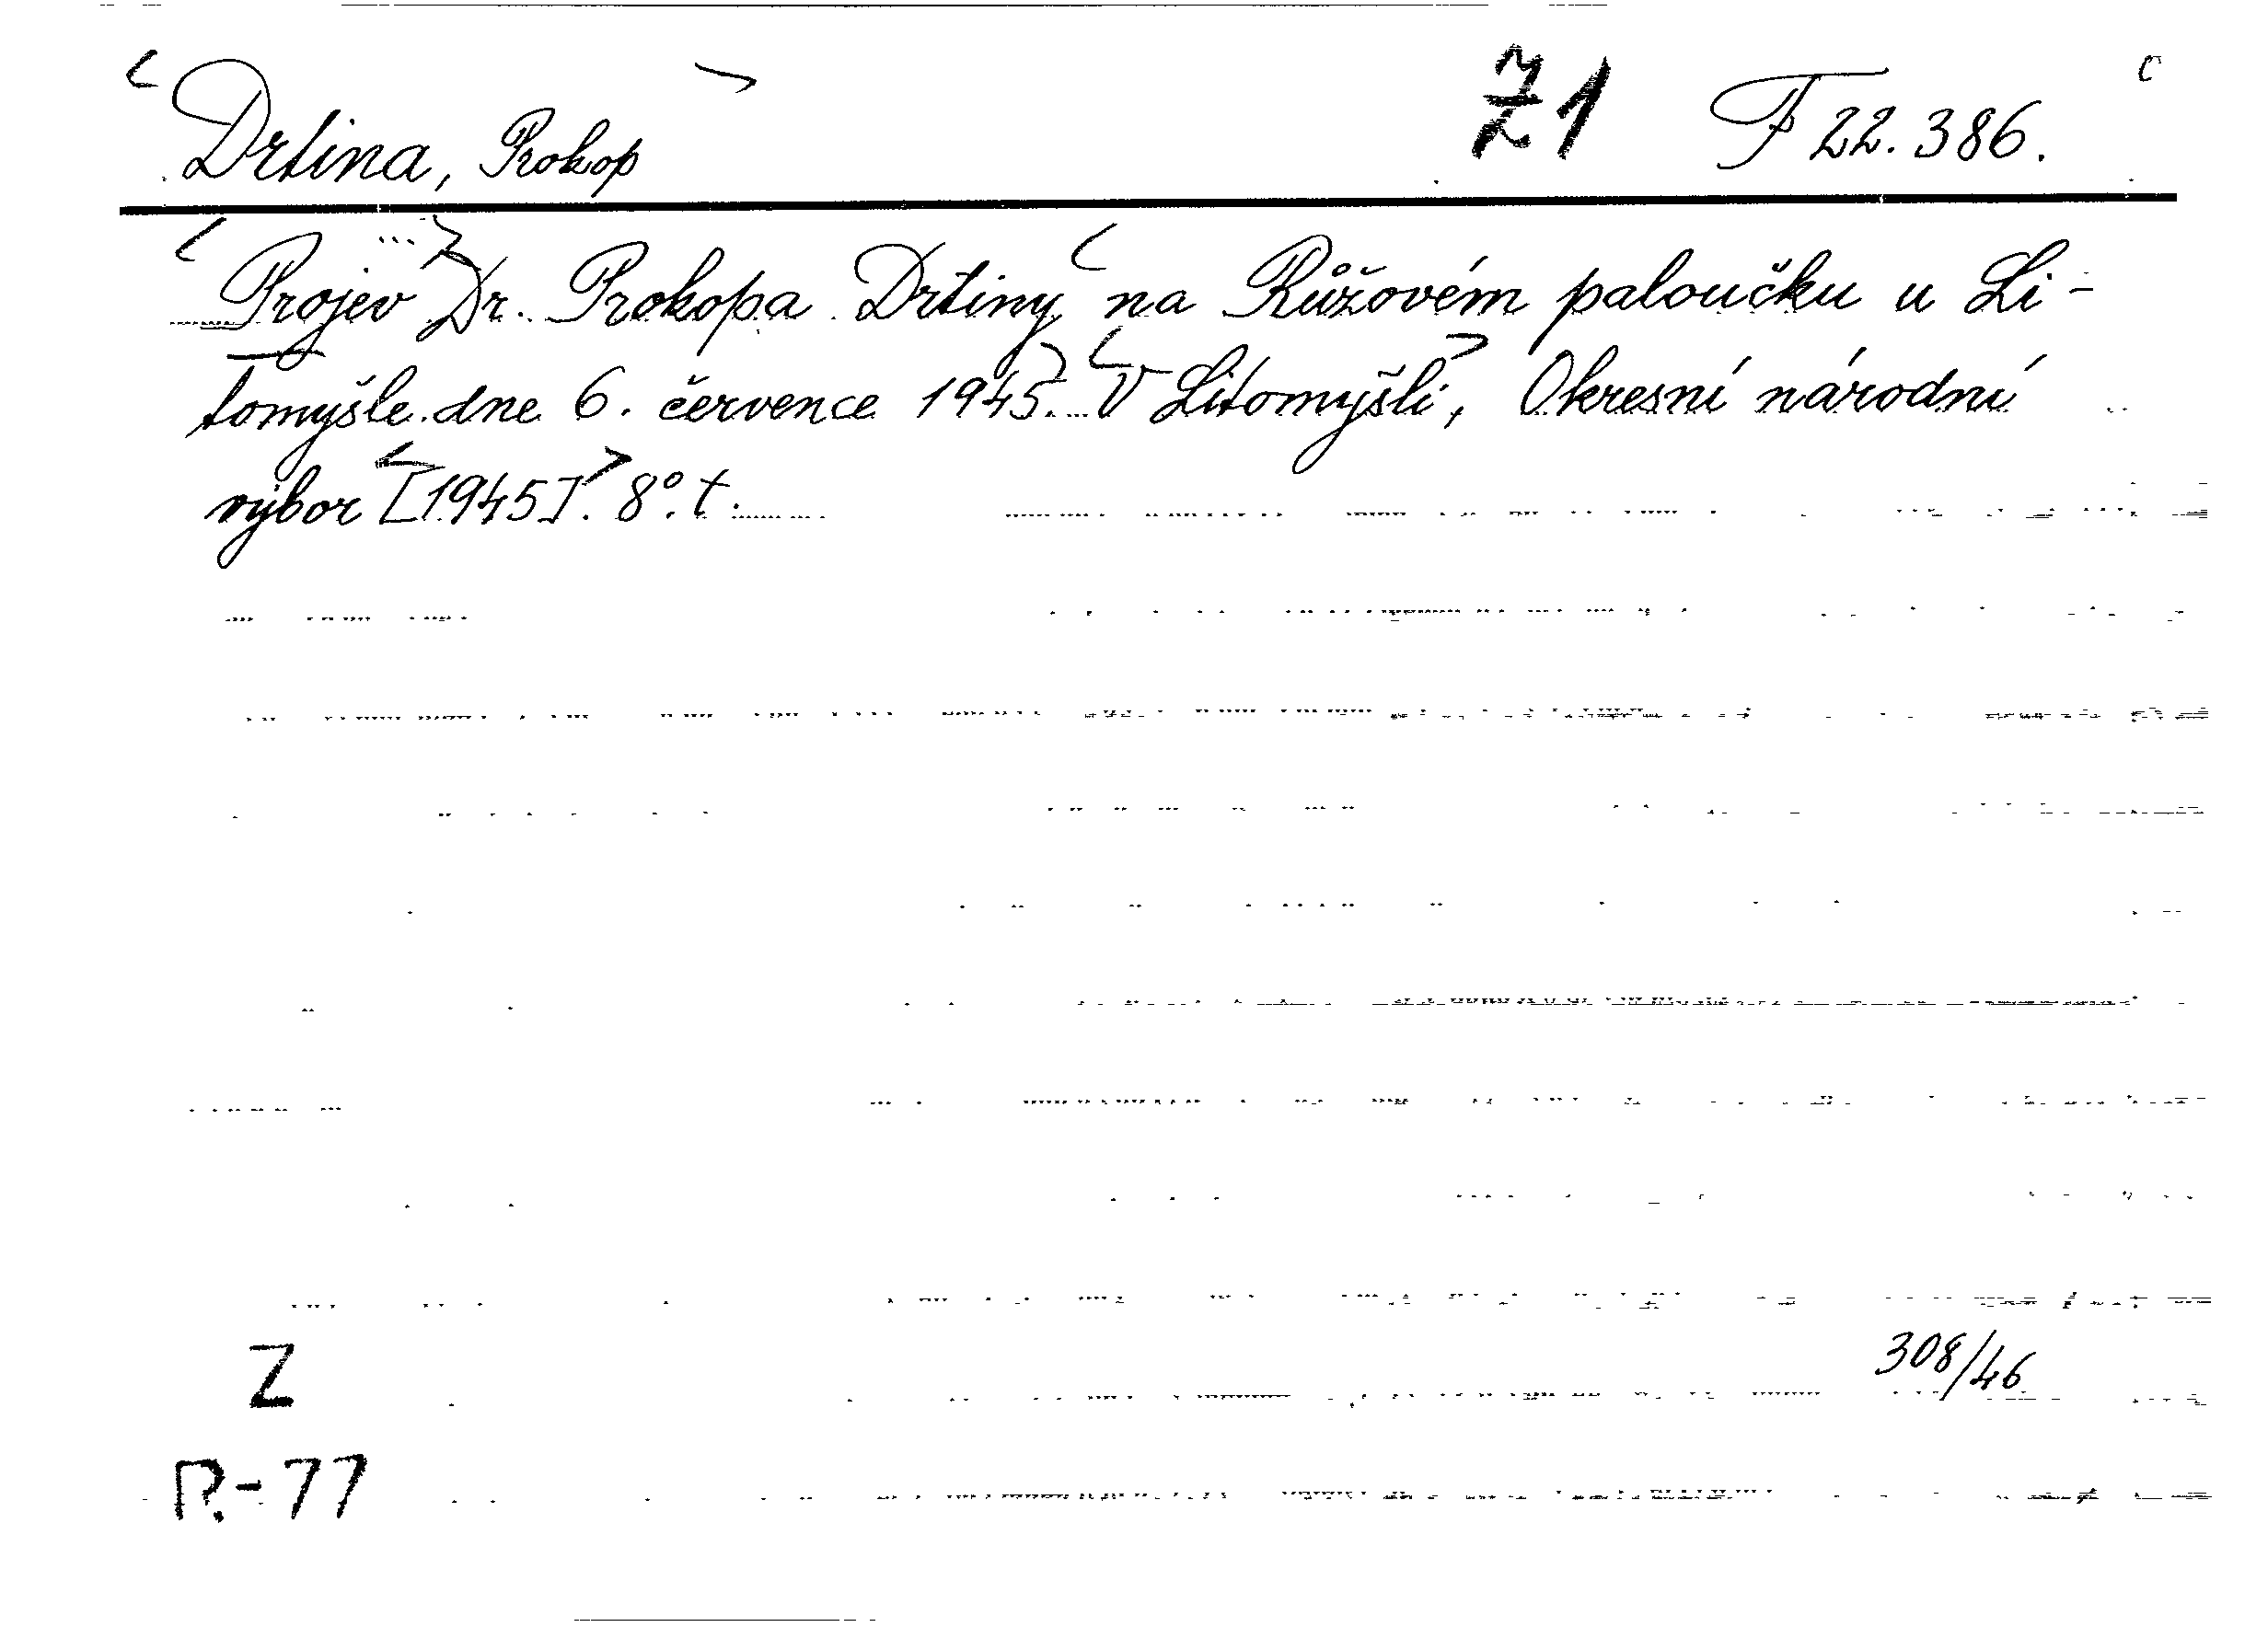 Drtina, Prokop Z1 F 22.386. c
Projev Dr. Prokopa Drtiny na Růžovém paloučku u Li-
tomyšle dne 6. července 1945. V Litomyšli, Okresní národní
výbor [1945]. 8°. t.
Z 308/46
R-77